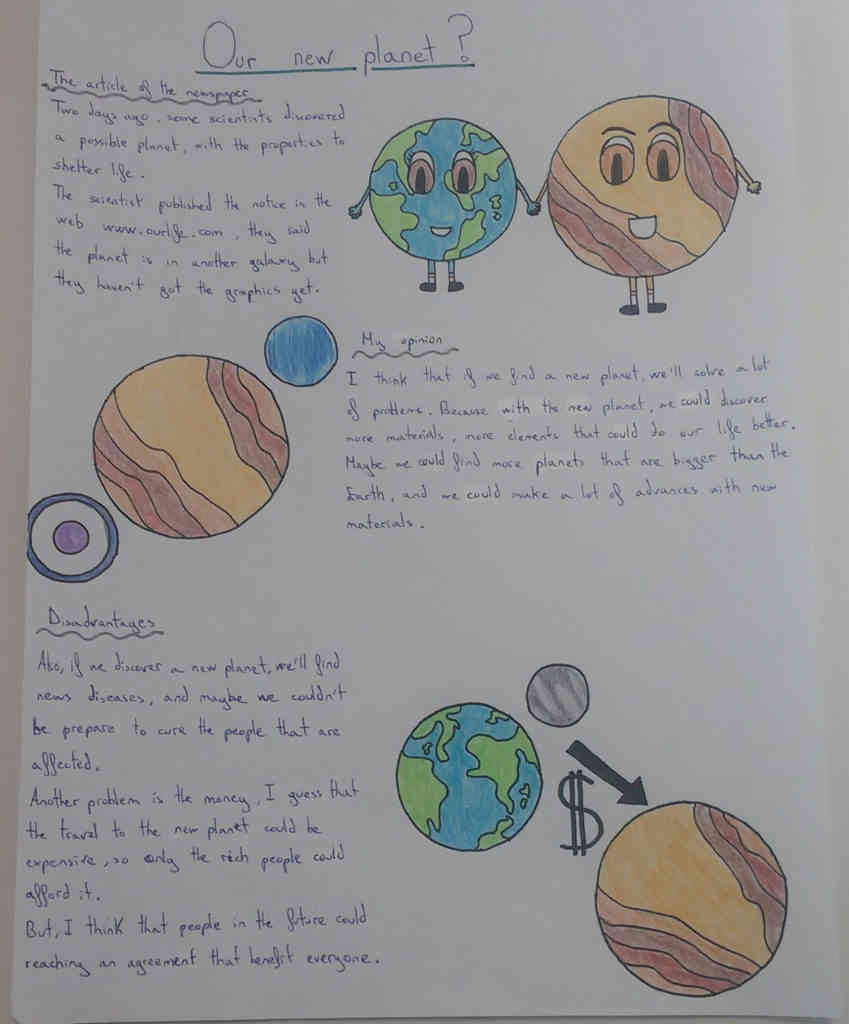 Our new planet?
The article of the newspaper
Two days ago, some scientists discovered
a possible planet, with the properties to
shelter life.
The scientist published the notice in the
web www.ourlife.com, they said
the planet is in another galaxy but
they haven't got the graphics yet.
My opinion
I think that if we find a new planet, we'll solve a lot
of problems. Because with the new planet, we could discover
more materials, more elements that could do our life better.
Maybe we could find more planets that are bigger than the
Earth, and we could make a lot of advances with new
materials.
Disadvantages
Also, if we discover a new planet, we'll find
news diseases, and maybe we couldn't
be prepare to cure the people that are
affected.
Another problem is the money, I guess that
the travel to the new planet could be
expensive, so only the rich people could
afford it.
But, I think that people in the future could
reaching an agreement that benefit everyone.
$